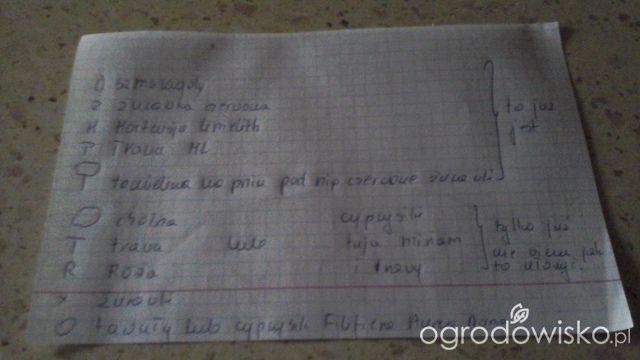 szmaragdy
Z żurawka czerwona
H Hortensja limelith
T Trawa ML
to już jest
T na pniu pod nią czerwone żurawki
choina cyprysik
T trawa lub tuja miriam
R Róża i trawy
tylko już nie wiem jak to ułożyć.
x żurawki
O tawuły lub cyprysik Filifera
ogrodowisko.pl